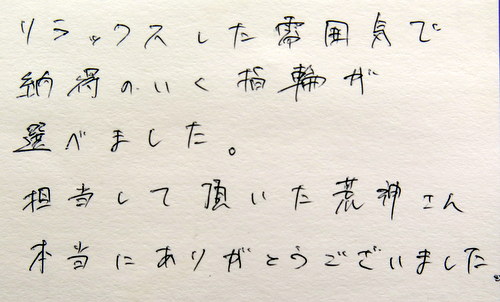 リラックスした雰囲気で
納得のいく指輪が
選べました。
担当して頂いた荒神さん
本当にありがとうございました。